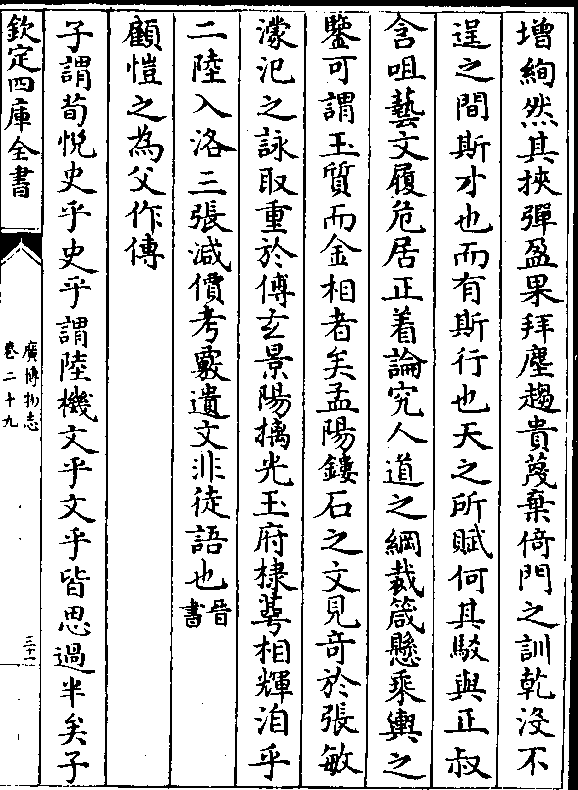 增絢然其挾彈盈果拜塵趨貴蔑棄倚門之訓乾沒不
逞之間斯才也而有斯行也天之所賦何其駁與正叔
含咀藝文履危居正着論究人道之綱裁箴懸乘輿之
鑒可謂玉質而金相者矣孟陽鏤石之文見奇於張敏
濛汜之詠取重於傅玄景陽摛光玉府棣萼相輝洎乎
二陸入洛三張減價考覈遺文非徒語也晉書
顧愷之為父作傳
子謂荀悅史乎史乎謂陸機文乎文乎皆思過半矣子
欽定四庫全書
廣博物志
卷二十九
三十二